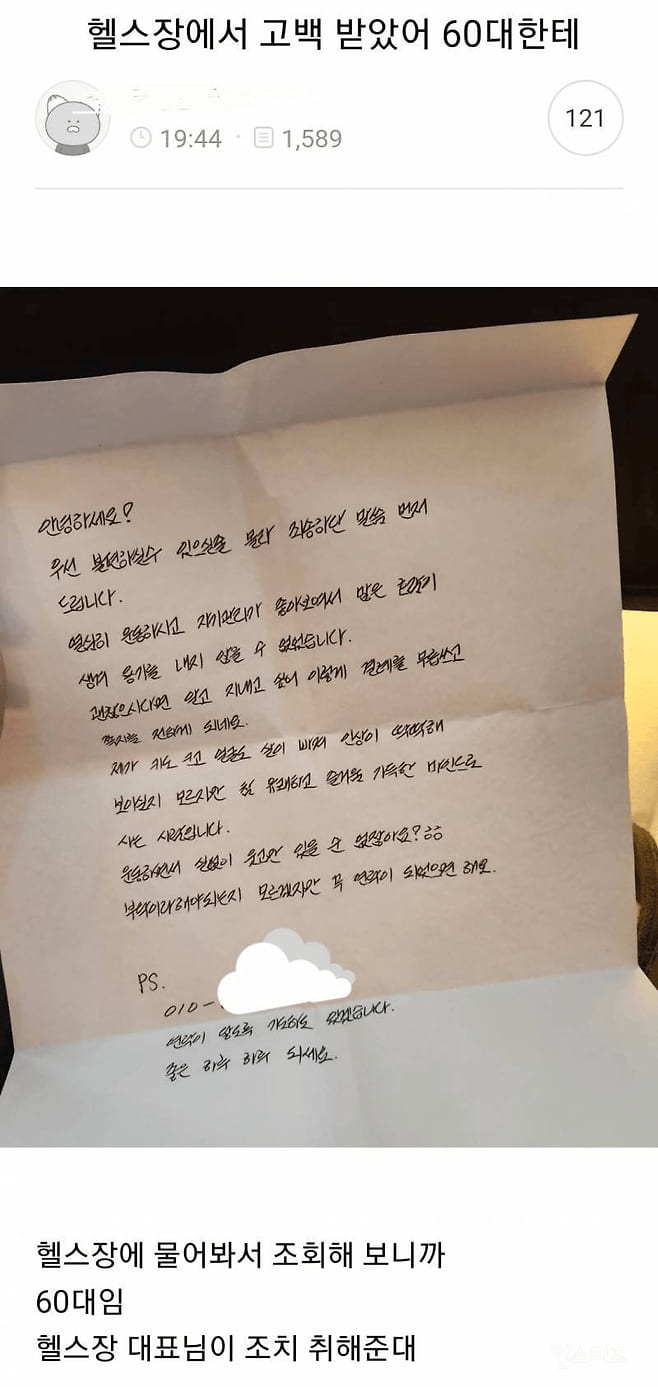 헬스장에서 고백 받았어 60대한테
19:44 · 1,589
121
안녕하세요?
우선 불편하실수 있으실줄 몰라 죄송하단 말씀 먼저
드립니다.
열심히 운동하시고 자기관리가 좋아보여서 많은
생겨 용기를 내지 않을 수 없었습니다.
괜찮으시다면 알고 지내고 싶어 이렇게 결례를 무릅쓰고
쪽지를 전하게 되네요.
제가 키도 크고 얼굴도 살이 빠져 인상이 딱딱해
보이실지 모르지만 참 유쾌하고 즐거움 가득한 마인드로
사는 사람입니다.
운동하면서 실없이 웃고만 있을 순 없잖아요?ㅎㅎ
부탁이라해야되는지 모르겠지만 꼭 연락이 되었으면 해요.
PS.
010-
연락이 않도록 기도하고 있겠습니다.
좋은 하루 하루 되세요.
헬스장에 물어봐서 조회해 보니까
60대임
헬스장 대표님이 조치 취해준대
인스티즈